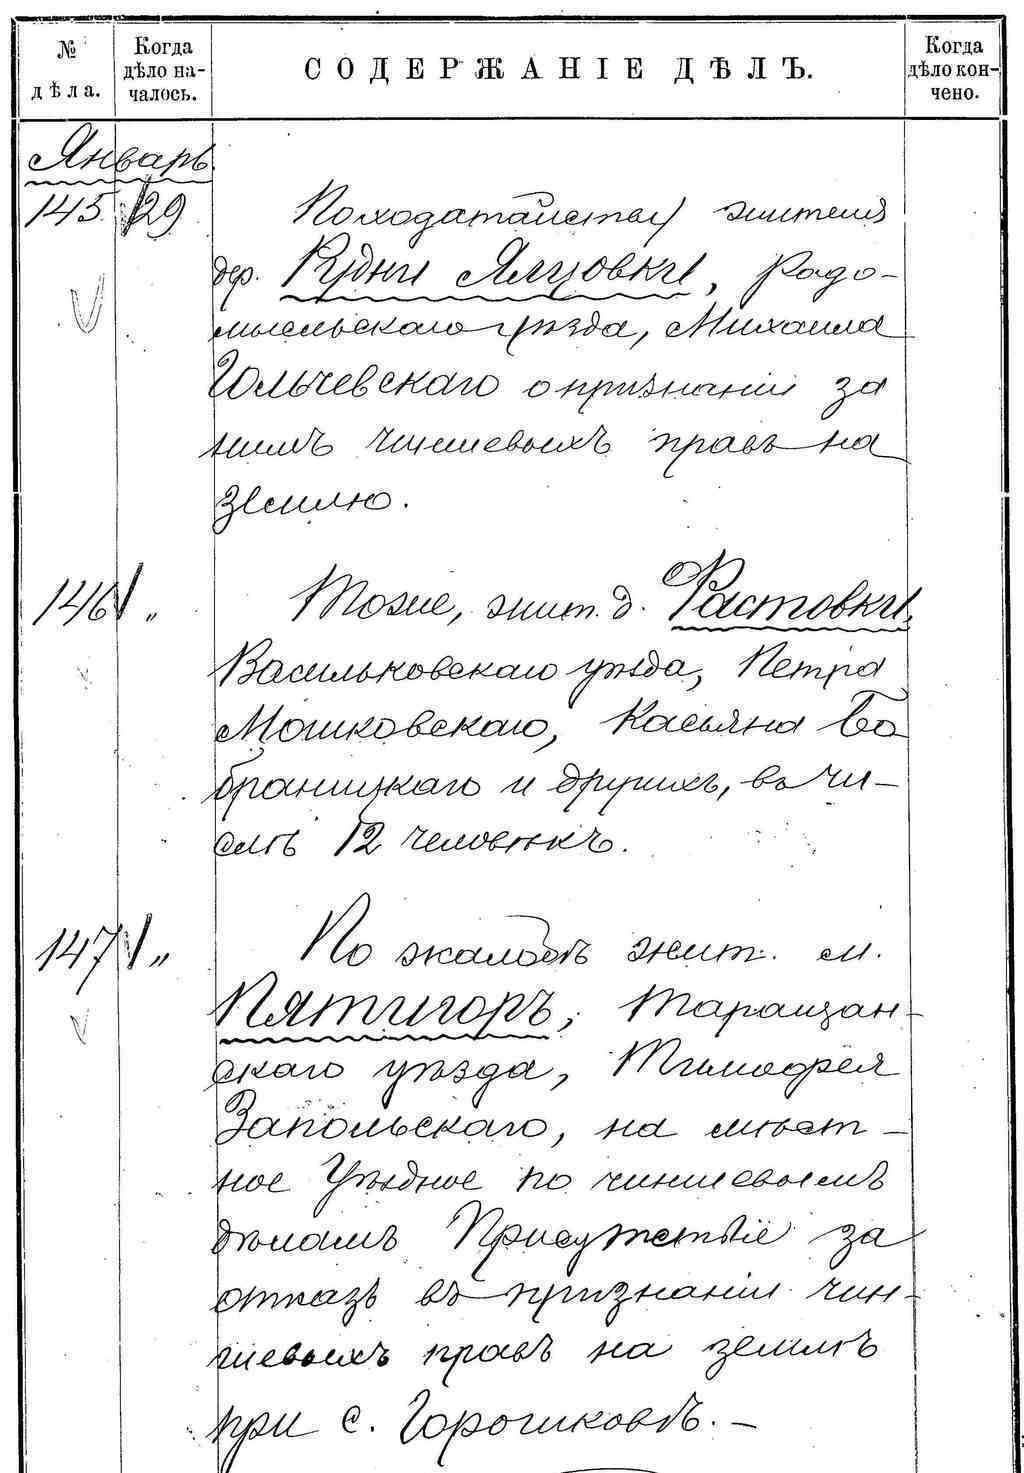 № дѣла.
Когда дѣло началось.
СОДЕРЖАНІЕ ДѢЛЪ.
Когда дѣло кончено.
Январь.
145. 29 По ходатайству жителя
дер. Рудни Ялцовки, Радо-
мысльскаго уѣзда, Михаила
Гольчевскаго о признаніи за
нимъ чиншевыхъ правъ на
землю.
146 „ Тоже, жит. д. Фастовки,
Васильковскаго уѣзда, Петра
Мошковскаго, Касьяна Бо
браницкаго и другихъ, въ чи-
слѣ 12 человѣкъ.
147 „ По жалобѣ жит. м.
Пятигоръ, Таращан-
скаго уѣзда, Тимофея
Запольскаго, на мѣст-
ное Уѣздное по чиншевымъ
дѣламъ Присутствіе за
отказъ въ признаніи чин-
шевыхъ правъ на землѣ
при с. Горошковѣ. –